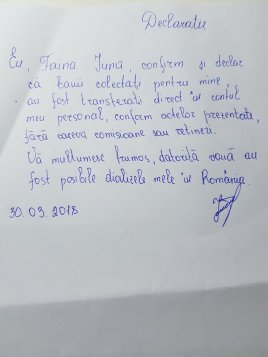 Declarație
Eu, Faina Juna, confirm și declar
că banii colectați pentru mine
au fost transferați direct în contul
meu personal, conform actelor prezentate,
fără careva comisioane sau rețineri.
Vă mulțumesc frumos, datorită vouă au
fost posibile dializele mele în România.
30.03.2018